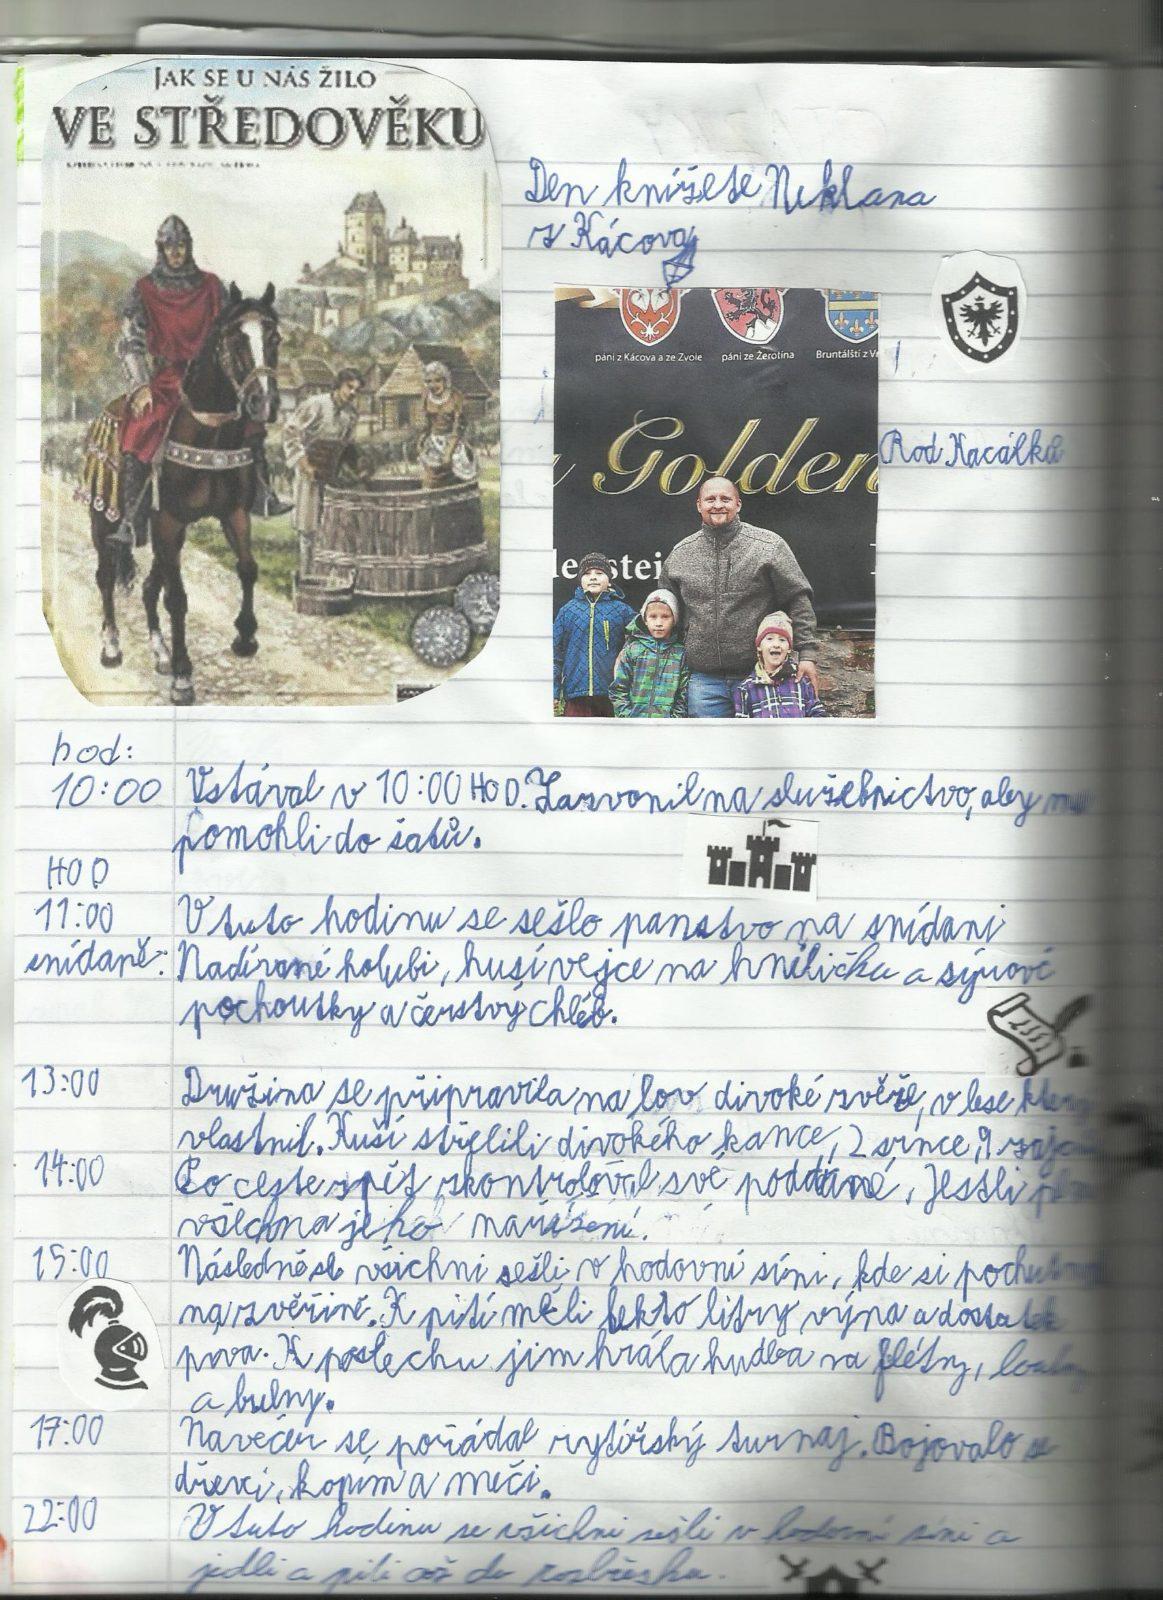 JAK SE U NÁS ŽILO
VE STŘEDOVĚKU
Den knížete Neklana
z Kácova
páni z Kácova a ze Zvole
páni ze Žerotína
Bruntálští z Vr
Golden
Rod Kacálků
hod:
10:00
Vstával v 10:00 HOD. Zazvonil na služebnictvo, aby mu
pomohli do šatů.
HOD
11:00
V tuto hodinu se sešlo panstvo na snídani
snídaně:
Nadívané holubi, husí vejce na hniličku a sýrové
pochoutky a čerstvý chléb.
13:00
Družina se připravila na lov divoké zvěře, v lese který
vlastnil. Kuší střelili divokého kance, 2 srnce, 9
14:00
Po ceste zpět zkontroloval své poddané, Jestli
všechna jeho nařízení.
15:00
Následně se všichni sešli v hodovní síni, kde si
na zvěřině. K pití měli hekto litry výna a dostatek
piva. K poslechu jim hrála hudba na flétny,
a bubny.
17:00
Navečer se pořádal rytířský turnaj. Bojovalo se
dřevci, kopím a meči.
22:00
V tuto hodinu se všichni sešli v hodovní síni a
jedli a pili až do rozbřesku.